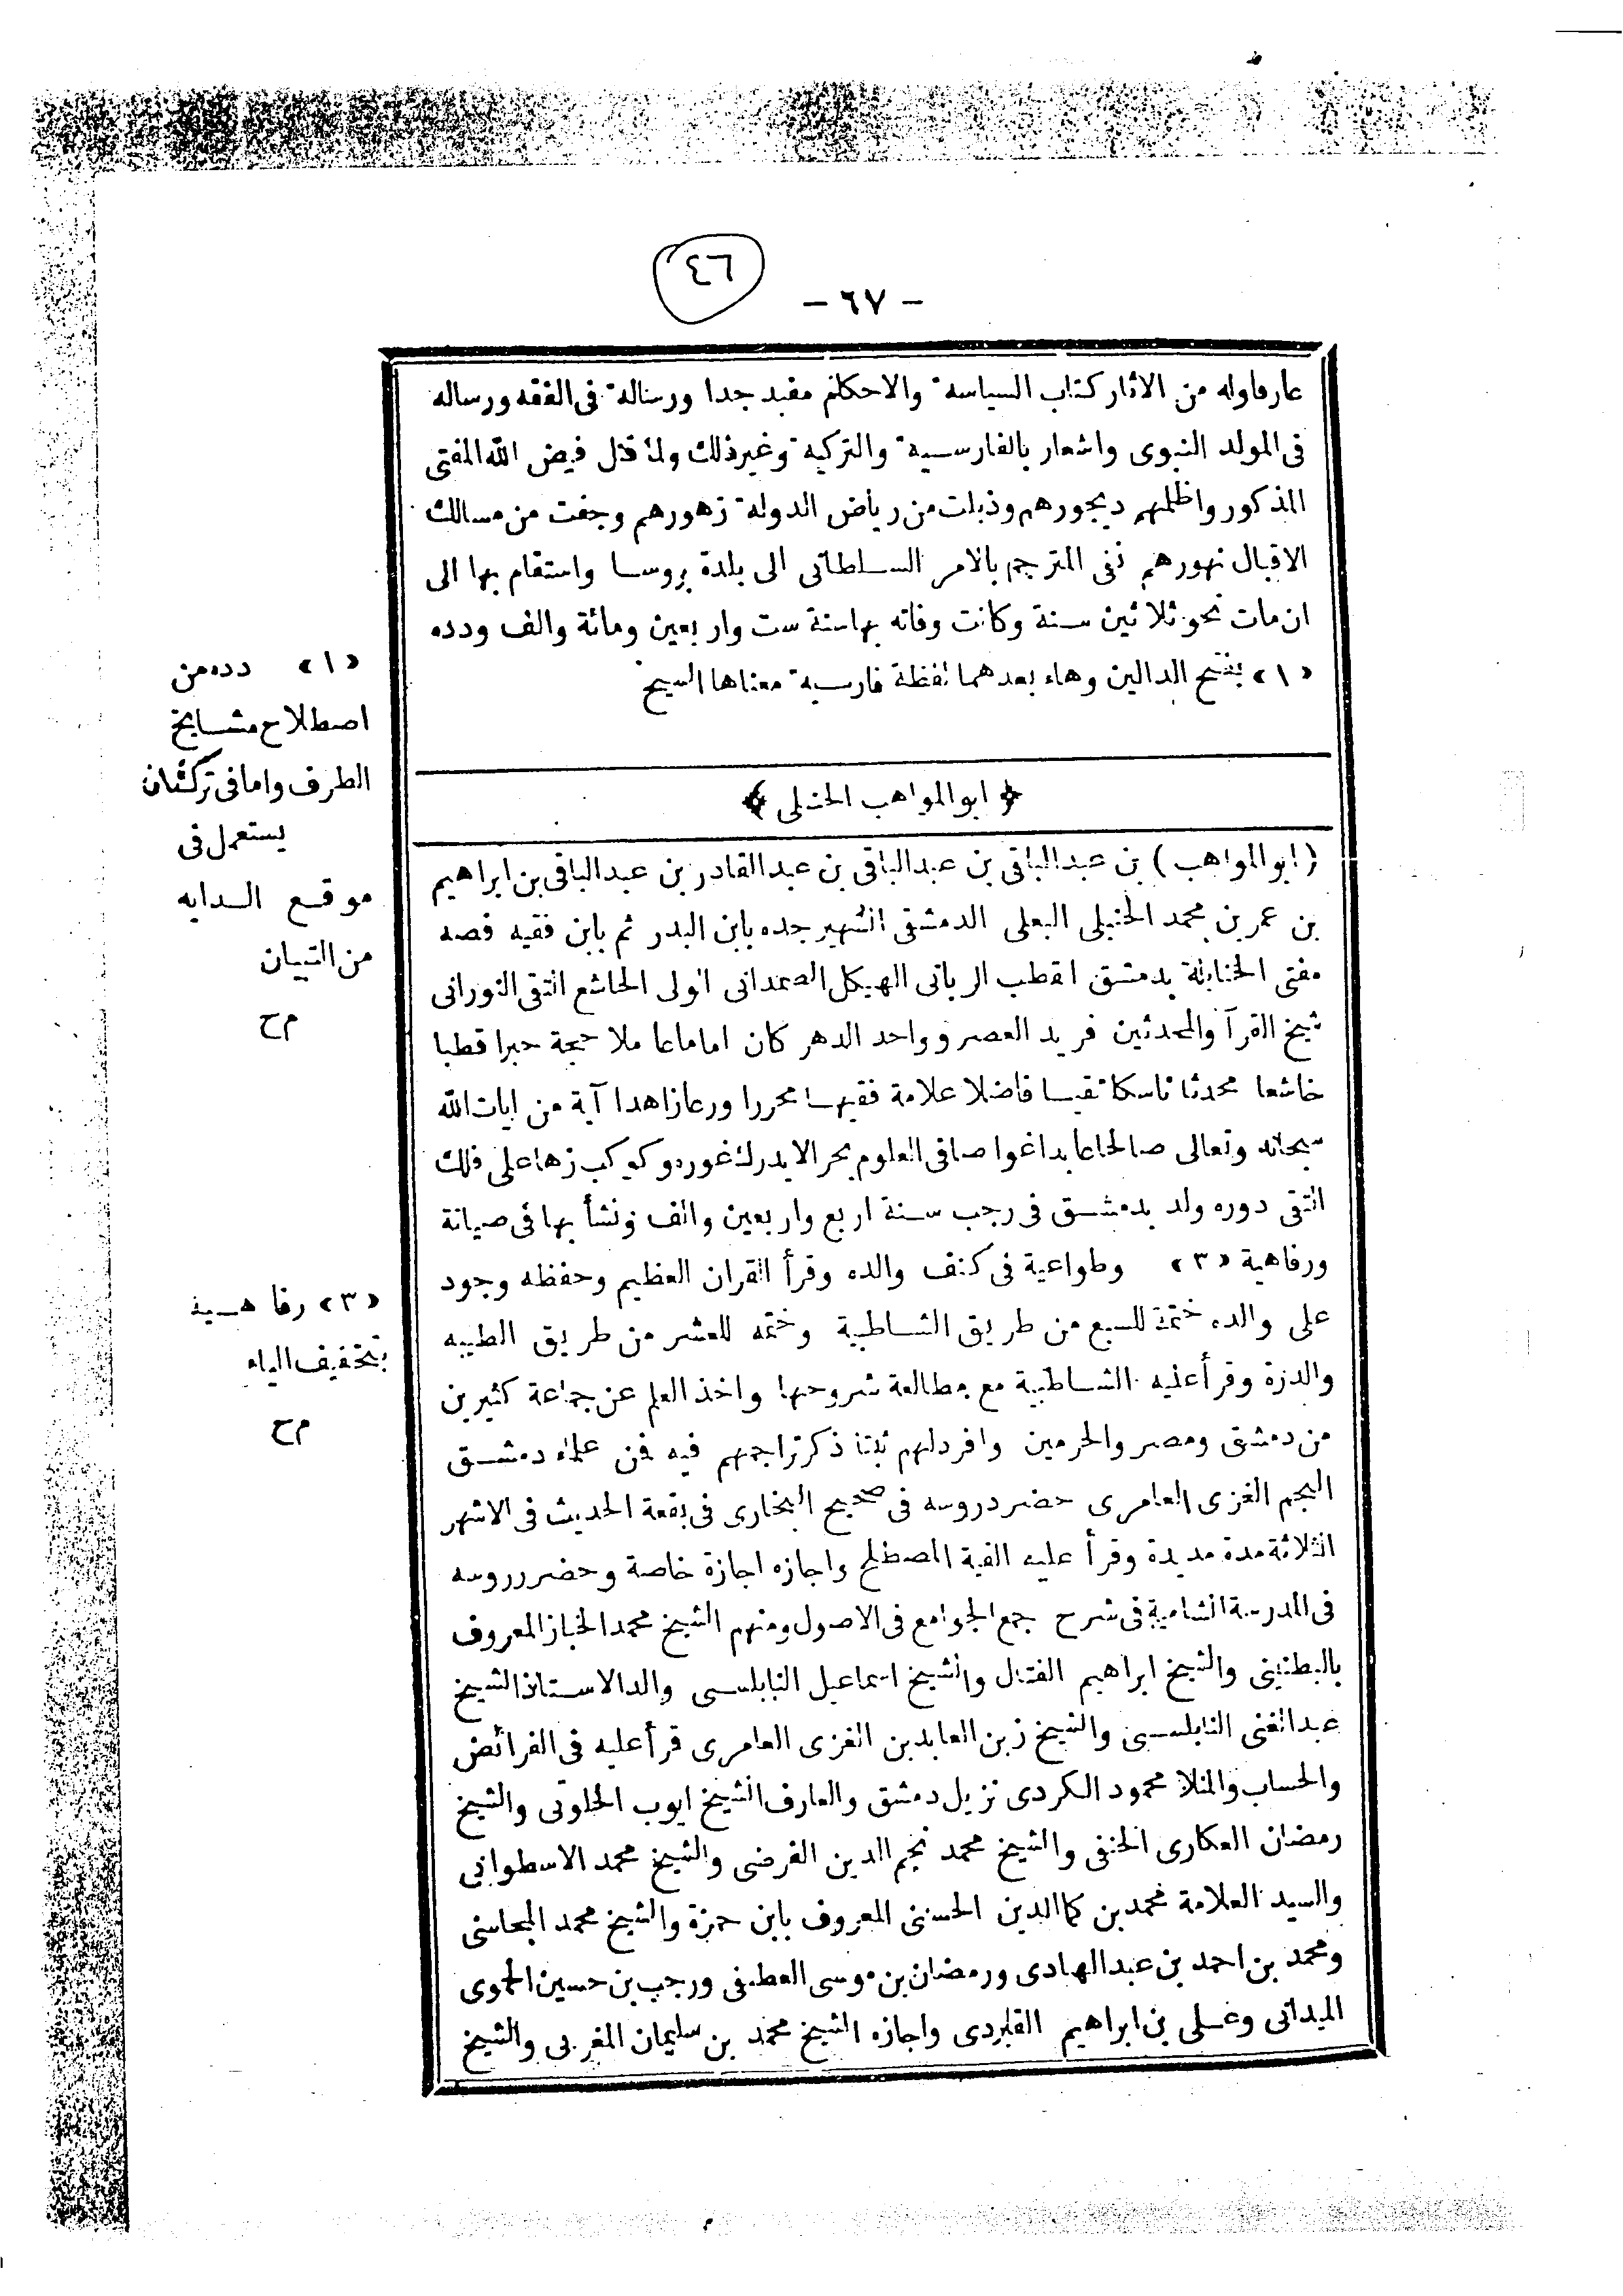 ٤٦
- ٦٧ -
عارفا وله من الاثار كتاب السياسة والاحكام مفيد جدا ورسالة فى الفقه ورساله
فى المولد النبوى واشعار بالفارسية والتركية وغير ذلك ولما قتل فيض الله المفتى
المذكور واظلمهم ديجورهم وذبلت من رياض الدولة زهورهم وجفت من مسالك
الاقبال نهورهم نفى المترجم بالامر السلطانى الى بلدة بروسا واستقام بها الى
ان مات نحو ثلاثين سنة وكانت وفاته بها سنة ست واربعين ومائة والف ودده
«١» بفتح الدالين وهاء بعدهما لفظة فارسية معناها الشيخ
﴿ ابو المواهب الحنبلى ﴾
(ابو المواهب) بن عبد الباقى بن عبد الباقى بن عبد القادر بن عبد الباقى بن ابراهيم
بن عمر بن محمد الحنبلى البعلى الدمشقى الشهير جده بابن البدر ثم بابن فقيه فصه
مفتى الحنابلة بدمشق القطب الربانى الهيكل الصمدانى الولى الخاشع التقى النورانى
شيخ القرآ والمحدثين فريد العصر وواحد الدهر كان اماما عاملا حجة حبرا قطبا
خاشعا محدثا ناسكا تقيا فاضلا علامة فقيها محررا ورعا زاهدا آية من ايات الله
سبحانه وتعالى صالحا عابدا غواصا فى العلوم بحرا لا يدرك غوره وكوكب زها على فلك
التقى دوره ولد بدمشق فى رجب سنة اربع واربعين والف ونشأ بها فى صيانة
ورفاهية «٣» وطواعية فى كنف والده وقرأ القران العظيم وحفظه وجود
على والده ختمة للسبع من طريق الشاطبية وختمه للعشر من طريق الطيبه
والدرة وقرأ عليه الشاطبية مع مطالعة شروحها واخذ العلم عن جماعة كثيرين
من دمشق ومصر والحرمين وافردلهم ثبتا ذكر تراجمهم فيه فمن علماء دمشق
النجم الغزى العامرى حضر دروسه فى صحيح البخارى فى بقعة الحديث فى الاشهر
الثلاثة مدة مديدة وقرأ عليه الفية المصطلح واجازه اجازة خاصة وحضر دروسه
فى المدرسة الشامية فى شرح جمع الجوامع فى الاصول ومنهم الشيخ محمد الخباز المعروف
بالبطنينى والشيخ ابراهيم الفتال والشيخ اسماعيل النابلسى والد الاستاذ الشيخ
عبد الغنى النابلسى والشيخ زين العابدين الغزى العامرى قرأ عليه فى الفرائض
والحساب والملا محمود الكردى نزيل دمشق والعارف الشيخ ايوب الخلوتى والشيخ
رمضان العكارى الحنفى والشيخ محمد نجم الدين الفرضى والشيخ محمد الاسطوانى
والسيد العلامة محمد بن كمالدين الحسنى المعروف بابن حمزة والشيخ محمد المحاسنى
ومحمد بن احمد بن عبد الهادى ورمضان بن موسى العطيفى ورجب بن حسين الحموى
الميدانى وعلى بن ابراهيم القبردى واجازه الشيخ محمد بن سليمان المغربى والشيخ
«١» دده من
اصطلاح مشايخ
الطرف واما فى تركستان
يستعمل فى
موقع الدايه
من التبيان
م ح
«٣» رفاهية
بتخفيف الياء
م ح